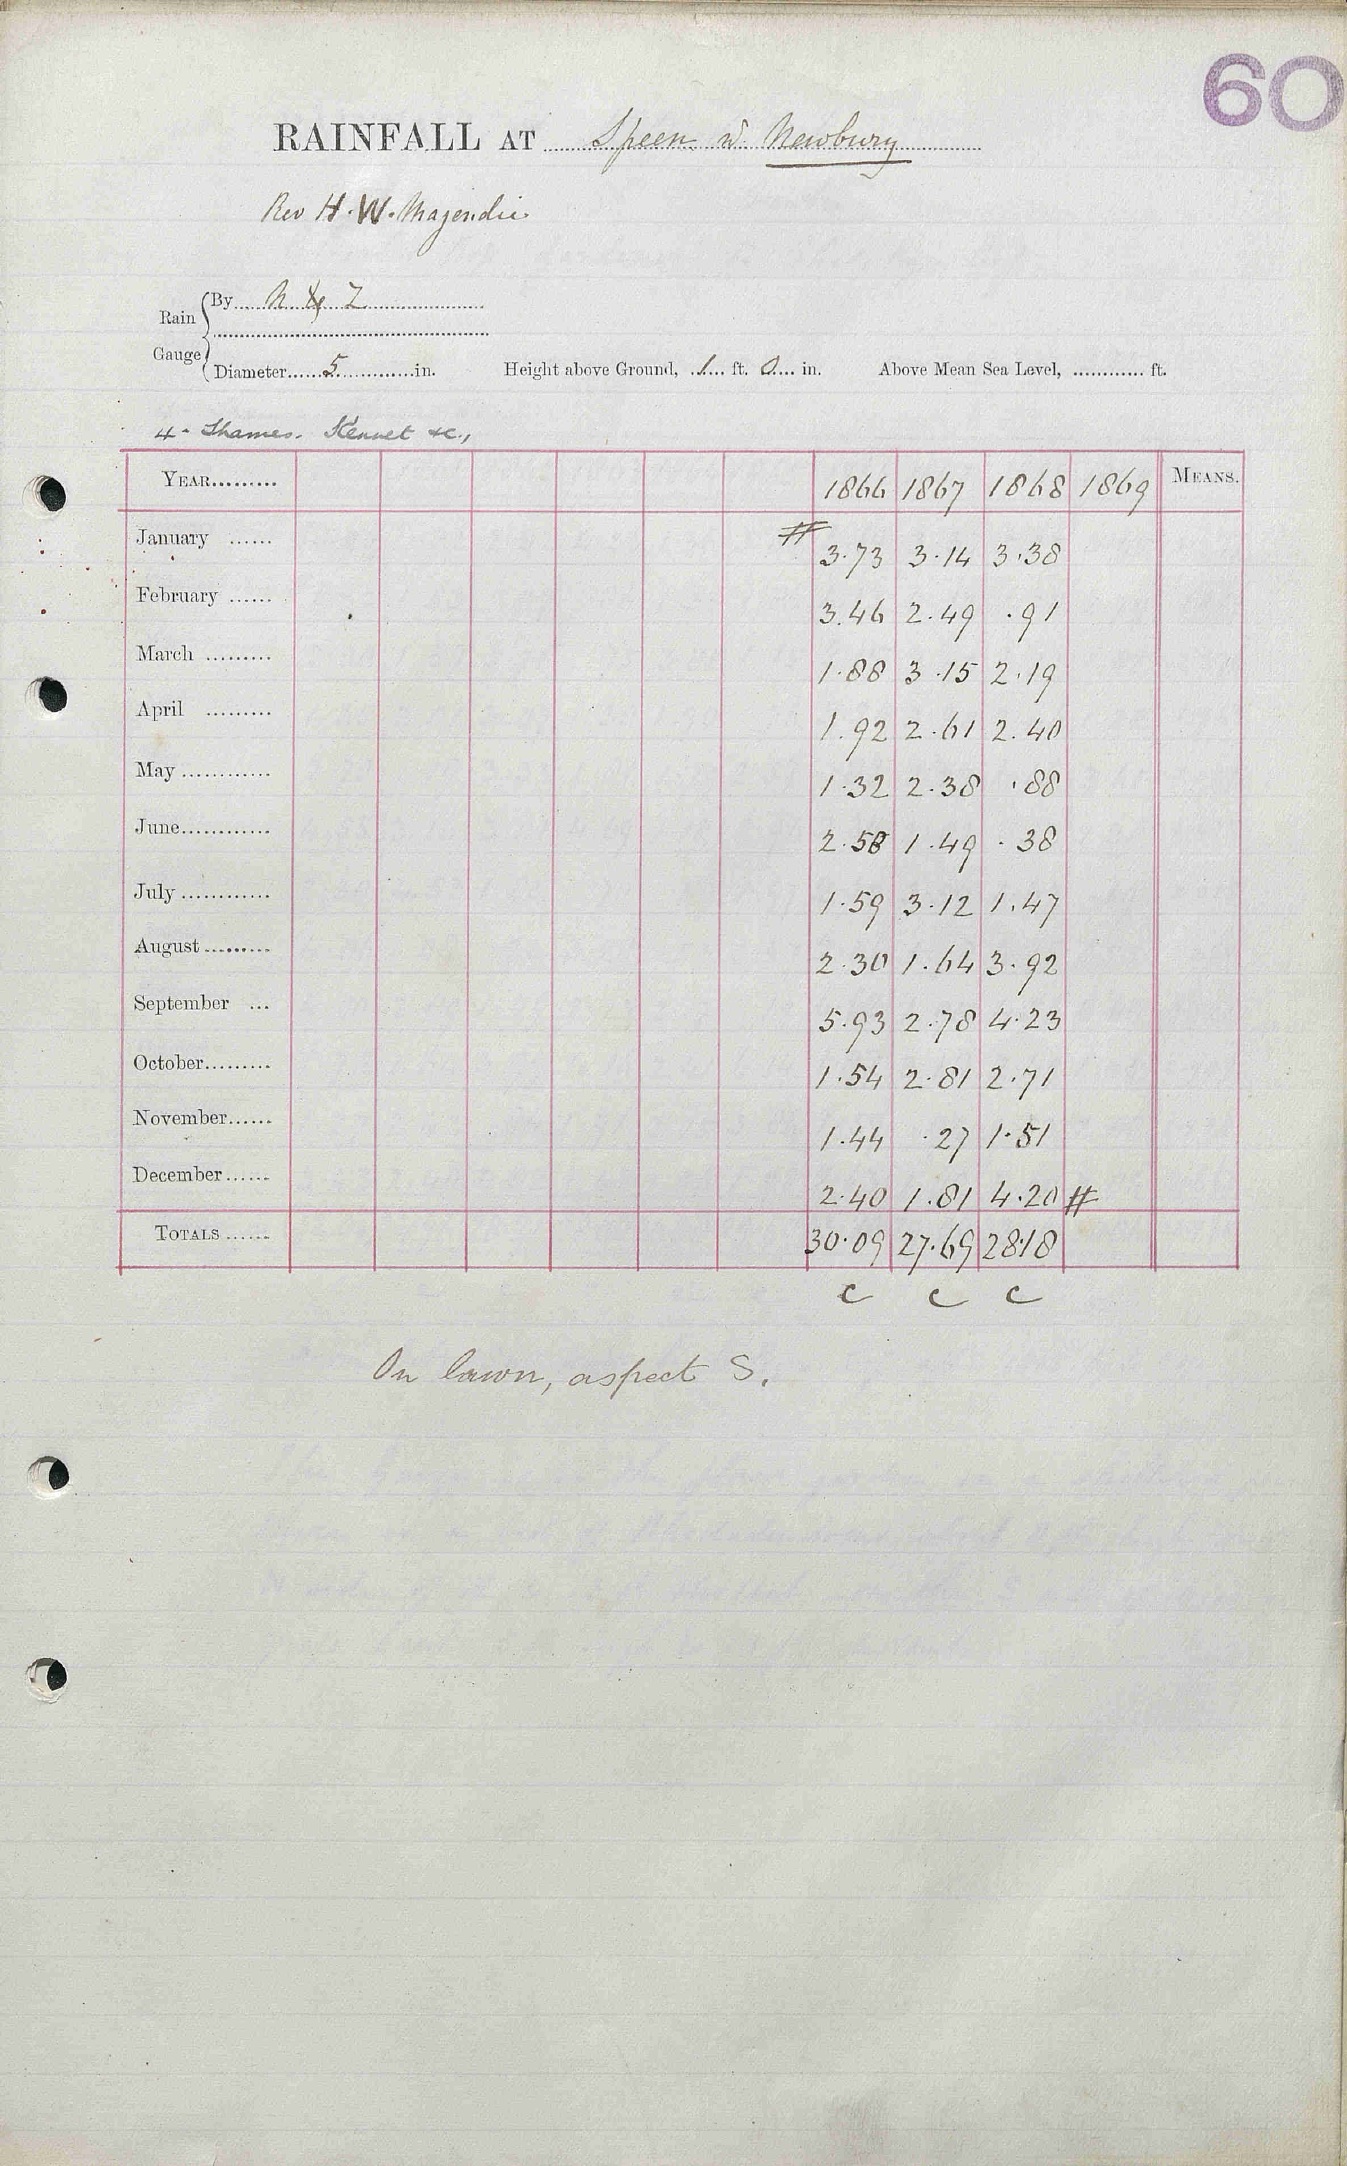 60
RAINFALL AT Speen. Newbury
Rev H. W. Magendie
Rain Gauge
By N & Z
Diameter......5............in. Height above Ground, .1... ft. 0.... in. Above Mean Sea Level, ............ ft.
4. Thames. Kennet &c.,
YEAR......... 1866 1867 1868 1869 MEANS.
January ...... # 3.73 3.14 3.38
February ...... 3.46 2.49 .91
March ......... 1.88 3.15 2.19
April ......... 1.92 2.61 2.40
May ............ 1.32 2.38 .88
June............ 2.58 1.49 .38
July ............ 1.59 3.12 1.47
August ......... 2.30 1.64 3.92
September ... 5.93 2.78 4.23
October......... 1.54 2.81 2.71
November...... 1.44 .27 1.51
December ...... 2.40 1.81 4.20 #
TOTALS ...... 30.09 27.69 28.18
c c c
On lawn, aspect S.